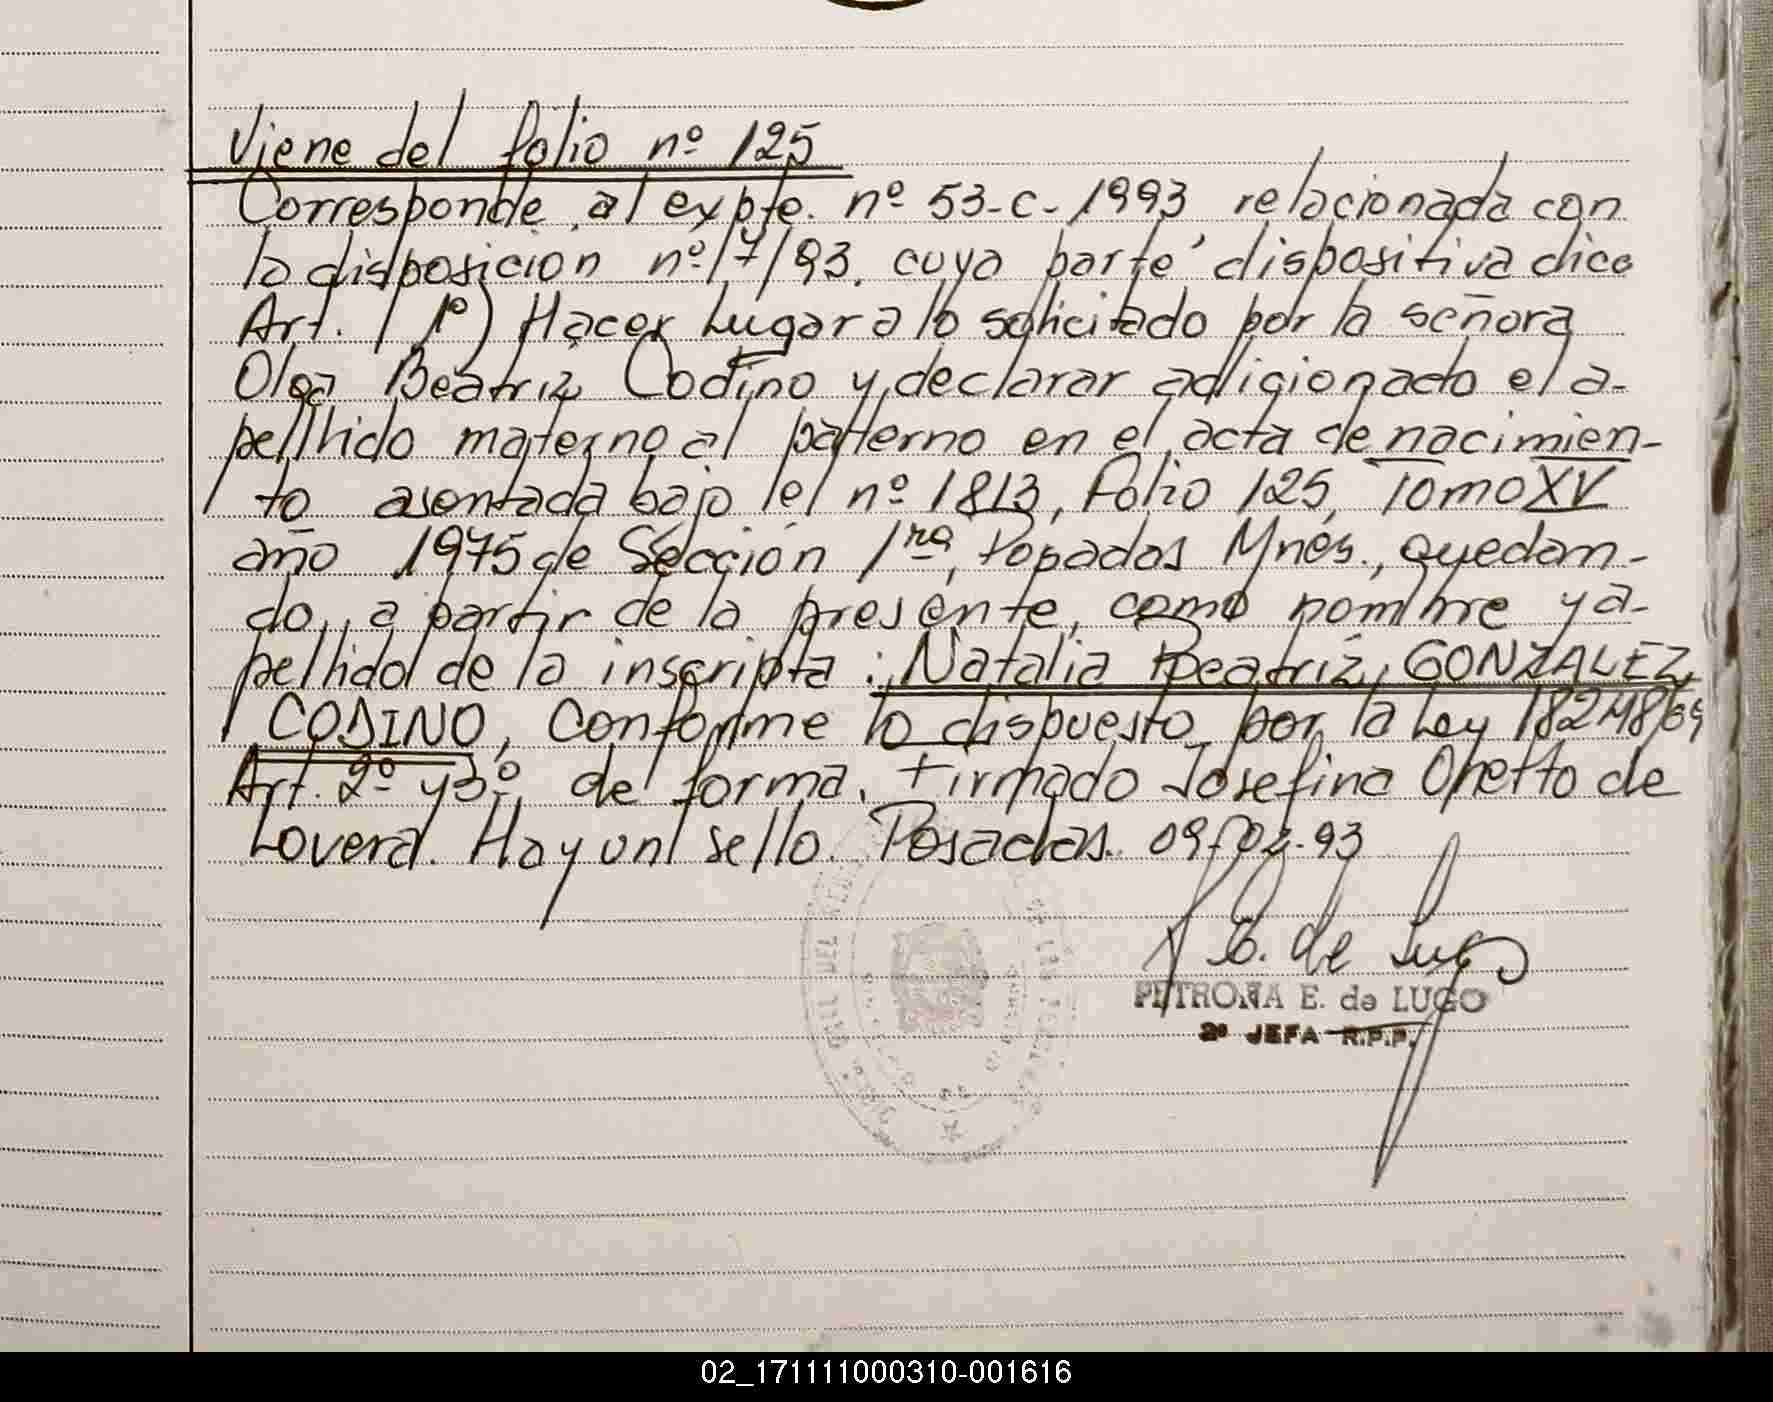 Viene del folio nº 125
Corresponde al expte. nº 53-C-1993 relacionada con
la disposicion nº 17/93. cuya parte dispositiva dice
Art. 1º) Hacer Lugar a lo solicitado por la señora
Olga Beatriz Codino y declarar adicionado el a-
pellhido materno al patterno en el acta de nacimien-
to asentada bajo el nº 1813, Folio 125, Tomo XV
año 1975 de Sección 1ra, Posadas Mnes., quedan-
do, a partir de la presente, como nombre y a-
pellido de la inscripta: Natalia Beatriz, GONZALEZ
CODINO, Conforme lo dispuesto por la Ley 18248/69
Art. 2º y 3º de forma. Firmado Josefina Ohetto de
Lovera. Hay un sello. Posadas. 09-02-93
P. E. de Lugo
PETRONA E. de LUGO
2ª JEFA R.P.P.
02_171111000310-001616